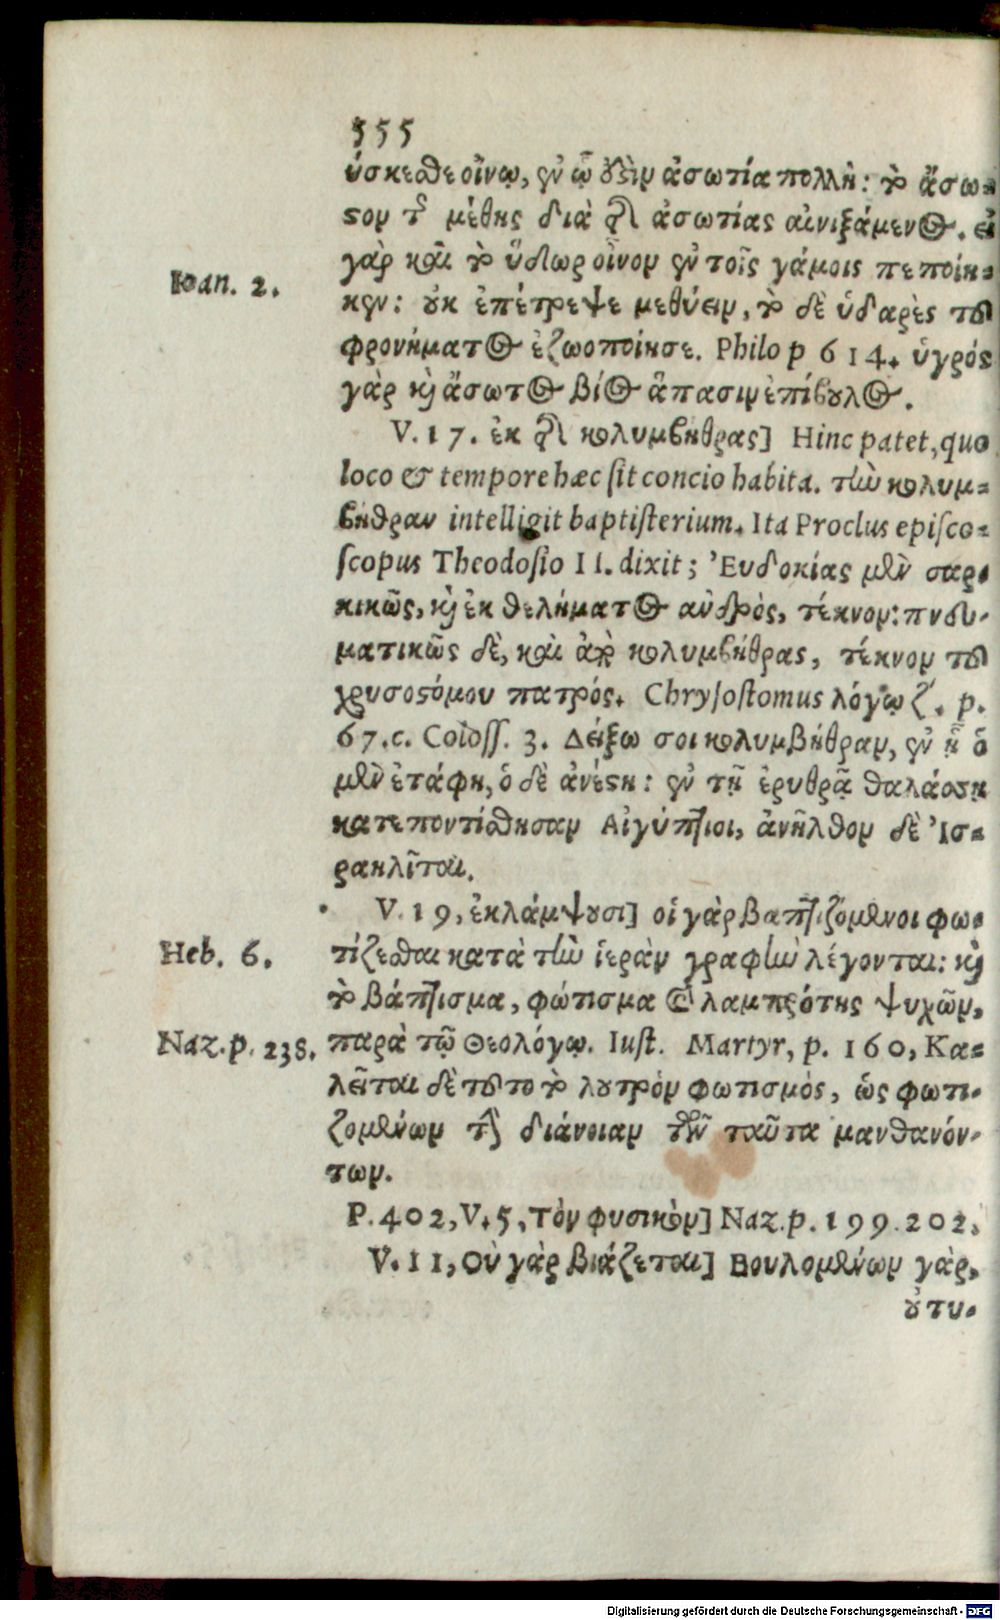 555
ύσκεσθε οἴνῳ, ἐν ᾧ ὅςιν ἀσωτία πολλή: τὸ ἄσω-
ςον τῆς μέθης διὰ τῆς ἀσωτίας αἰνιξάμενος. εἰ
γὰρ καὶ τὸ ὕδωρ οἶνον ἐν τοῖς γάμοις πεποίη-
Ioan. 2.
κεν: οὐκ ἐπέτρεψε μεθύειν, τὸ δὲ ὑδαρὲς τοῦ
φρονήματος ἐζωοποίησε. Philo p 614. ὑγρός
γὰρ καὶ ἄσωτος βίος ἅπασιν ἐπίβουλος.
V. 17. ἐκ τῆς κολυμβήθρας] Hinc patet, quo
loco & tempore hæc sit concio habita. τὴν κολυμ-
βήθραν intelligit baptisterium. Ita Proclus episco-
scopus Theodosio II. dixit; Ἐυδοκίας μὲν σαρ-
κικῶς, καὶ ἐκ θελήματος ἀνδρὸς, τέκνον: πνευ-
ματικῶς δὲ, καὶ ἀπὸ κολυμβήθρας, τέκνον τοῦ
χρυσοςόμου πατρός. Chrysostomus λόγῳ ζ. p.
67.c. Coloss. 3. Δείξω σοι κολυμβήθραν, ἐν ᾗ ὁ
μὲν ἐτάφη, ὁ δὲ ἀνέςη: ἐν τῇ ἐρυθρᾷ θαλάσσῃ
κατεποντίσθησαν Αἰγύπτιοι, ἀνῆλθον δὲ Ἰσ-
ραηλῖται.
V. 19, ἐκλάμψουσι] οἱ γὰρ βαπτιζόμενοι φω-
Heb. 6.
τίζεσθαι κατὰ τὴν ἱερὰν γραφὴν λέγονται: καὶ
τὸ βάπτισμα, φώτισμα καὶ λαμπρότης ψυχῶν,
Naz. p. 238.
παρὰ τῷ Θεολόγῳ. Iust. Martyr, p. 160, Κα-
λεῖται δὲ τοῦτο τὸ λουτρὸν φωτισμὸς, ὡς φωτι-
ζομένων τὴν διάνοιαν τῶν ταῦτα μανθανόν-
των.
P. 402, V. 5, Τὸν φυσικὸν] Naz. p. 199. 202.
V. 11, Οὐ γὰρ βιάζεται] Βουλομένων γὰρ,
οὐ τυ-
Digitalisierung gefördert durch die Deutsche Forschungsgemeinschaft - DFG